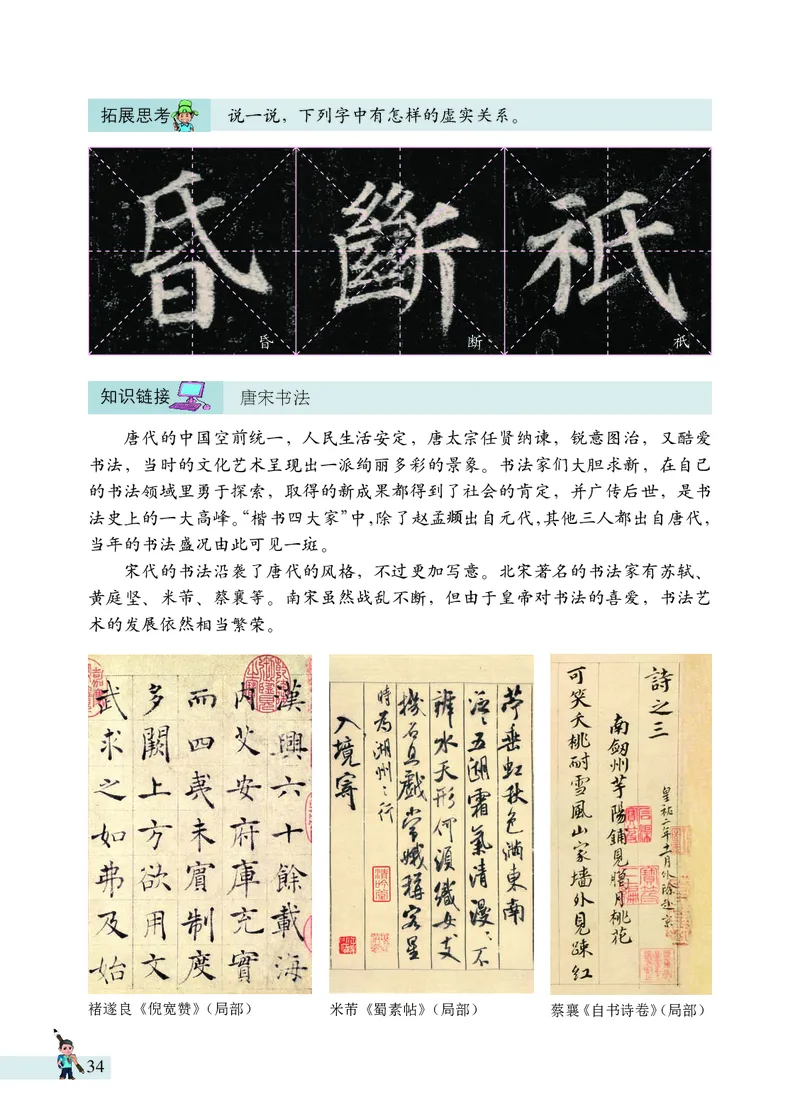 拓展思考
说一说，下列字中有怎样的虚实关系。
昏 斷 祇
昏 断 祇
知识链接
唐宋书法
唐代的中国空前统一，人民生活安定，唐太宗任贤纳谏，锐意图治，又酷爱
书法，当时的文化艺术呈现出一派绚丽多彩的景象。书法家们大胆求新，在自己
的书法领域里勇于探索，取得的新成果都得到了社会的肯定，并广传后世，是书
法史上的一大高峰。“楷书四大家”中，除了赵孟頫出自元代，其他三人都出自唐代，
当年的书法盛况由此可见一斑。
宋代的书法沿袭了唐代的风格，不过更加写意。北宋著名的书法家有苏轼、
黄庭坚、米芾、蔡襄等。南宋虽然战乱不断，但由于皇帝对书法的喜爱，书法艺
术的发展依然相当繁荣。
漢興六十餘載海
内艾安府庫充實
而四夷未賓制度
多闕上方欲用文
武求之如弗及始
褚遂良《倪宽赞》（局部）
芦垂虹秋色滿東南
泛泛五湖霜氣清漫漫不
辨水天形何須織女支
機石且戲常娥稱客星
時為湖州之行
入境寄
米芾《蜀素帖》（局部）
詩之三
皇祐二年十一月外除赴京
南劔州芋陽鋪見臘月桃花
可笑夭桃耐雪風山家墻外見踈紅
蔡襄《自书诗卷》（局部）
34